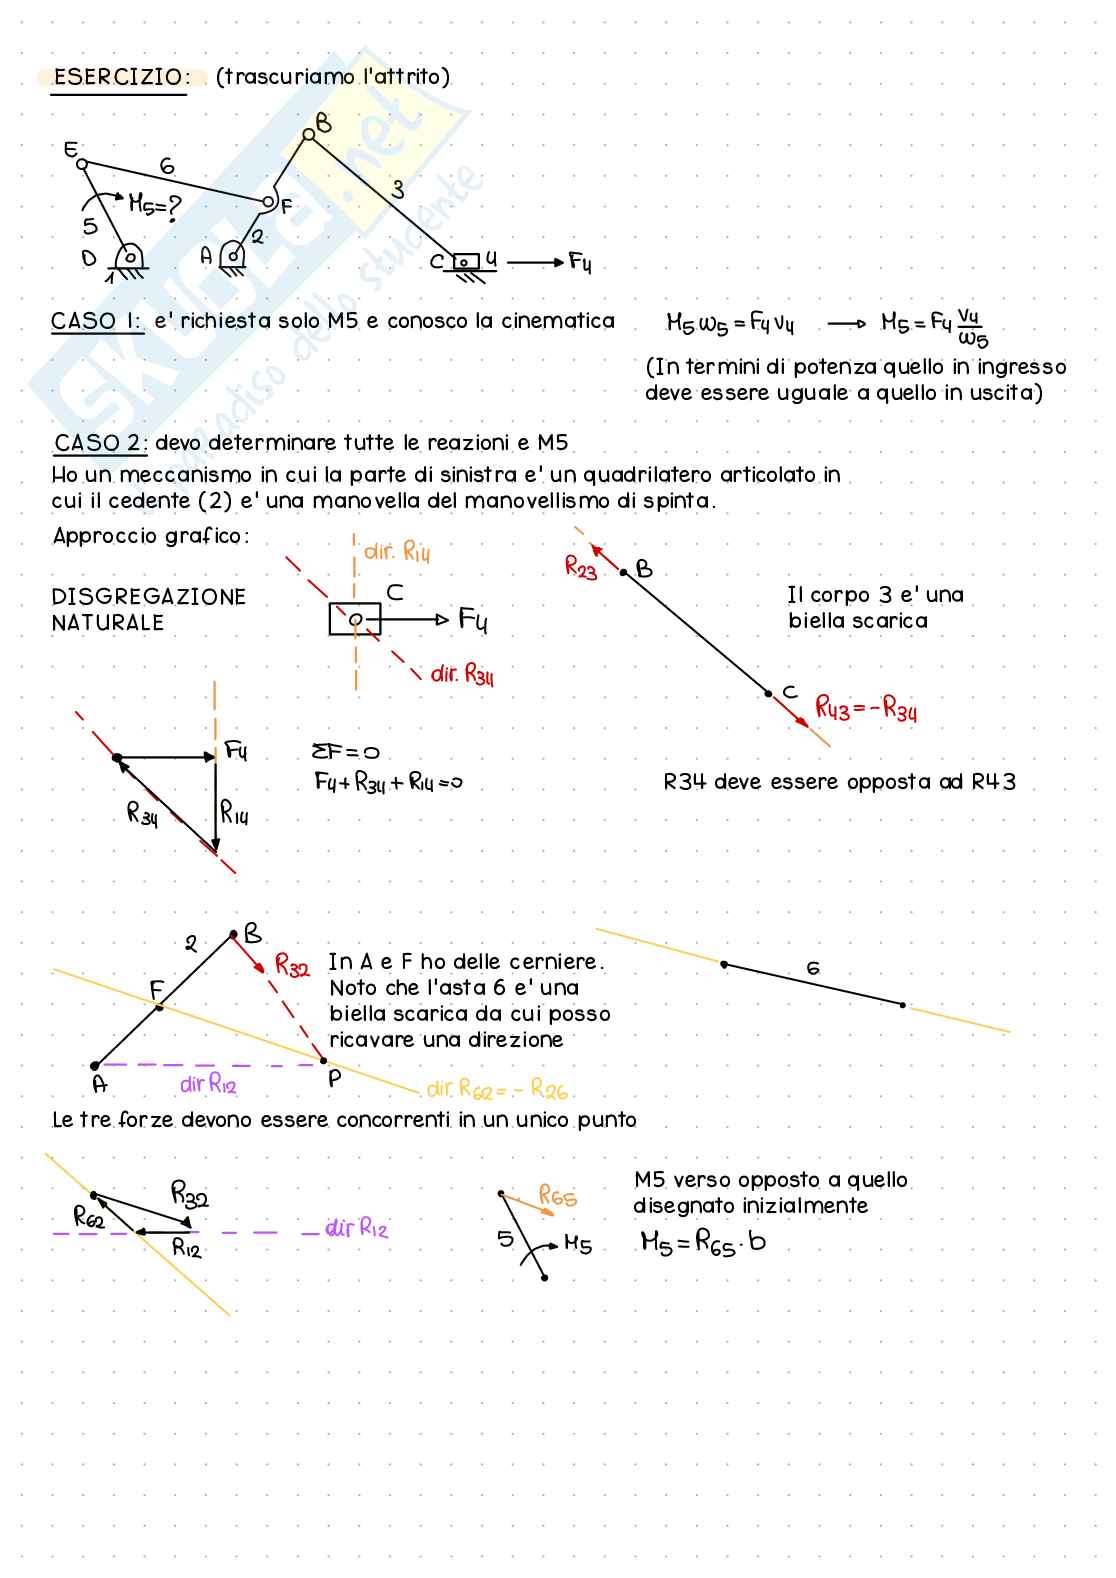 ESERCIZIO: (trascuriamo l'attrito)
B
E
6
3
M5=?
F
5
2
D
A
C
4
F4
1
CASO 1: e' richiesta solo M5 e conosco la cinematica
M5 ω5 = F4 v4 → M5 = F4 v4/ω5
(In termini di potenza quello in ingresso
deve essere uguale a quello in uscita)
CASO 2: devo determinare tutte le reazioni e M5
Ho un meccanismo in cui la parte di sinistra e' un quadrilatero articolato in
cui il cedente (2) e' una manovella del manovellismo di spinta.
Approccio grafico:
dir. R14
R23
B
C
DISGREGAZIONE
NATURALE
F4
Il corpo 3 e' una
biella scarica
dir. R34
C
R43 = -R34
F4
ΣF = 0
F4 + R34 + R14 = 0
R34 deve essere opposta ad R43
R34
R14
2
B
R32
In A e F ho delle cerniere.
Noto che l'asta 6 e' una
biella scarica da cui posso
ricavare una direzione
6
F
A
dir R12
P
dir R62 = - R26
Le tre forze devono essere concorrenti in un unico punto
R32
R62
R12
dir R12
R65
5
M5
M5 verso opposto a quello
disegnato inizialmente
M5 = R65 · b
SKUOLA.net
paradiso dello studente